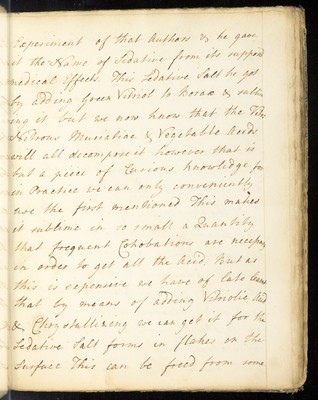 Experiment of that Author & he gave
it the Name of Sedative from its supposd
medical Effects. This Sedative Salt he got
by adding Green Vitriol to Borax & subli
ing it but we now know that the
Nitrous Muriatiac & Vegetable Acids
will all decompose it however that is
but a piece of Curious knowledge for
in Practice we can only conveniently
use the first mentioned This makes
it sublime in so small a Quantity
that frequent Cohobations are necessary
in order to get all the Acid. But as
this is expensive we have of late
that by means of adding Vitriolic Acid
& Chrystallizing we can get it for the
Sedative Salt forms in flakes on the
Surface This can be freed from some